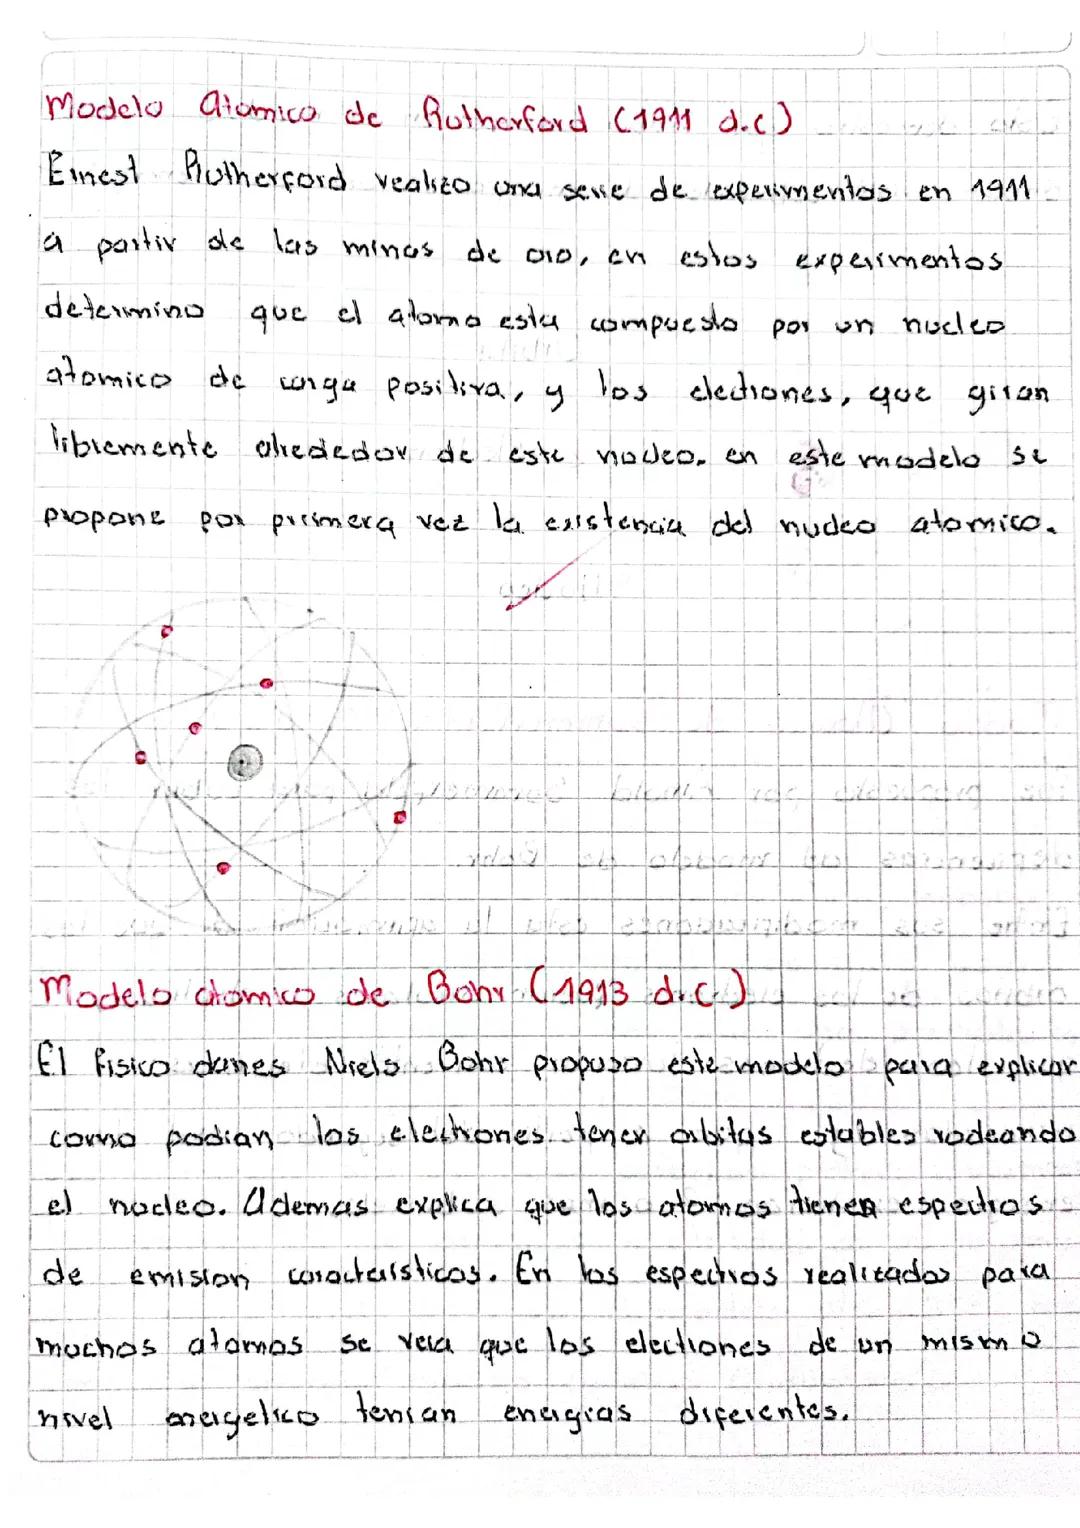 Modelo Atomico de Rutherford (1911 d.c)
Ernest Rutherford realizo una serie de experimentos en 1911
a partir de las minas de oro, en estos experimentos
determino que el atomo esta compuesto por un nucleo
atomico de carga positiva, y los electrones, que giran
libremente alrededor de este nucleo. en este modelo se
propone por primera vez la existencia del nucleo atomico.
Modelo atomico de Bohr (1913 d.c.)
El fisico danes Niels Bohr propuso este modelo para explicar
como podian los electrones tener orbitas estables rodeando
el nucleo. Ademas explica que los atomos tienen espectros
de emision caracteristicos. En los espectros realizados para
muchos atomos se veia que los electrones de un mismo
nivel energetico tenian energias diferentes.